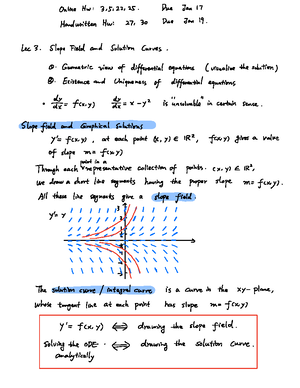 Online Hw: 3,5,22,25. Due Jan 17
Handwritten Hw: 27, 30 Due Jan 19.
Lec 3. Slope Field and Solution Curves.
①. Geometric view of differential equations (visualize the solution)
②. Existence and Uniqueness of differential equations
• dy/dx = f(x,y) dy/dx = x - y² is "insolvable" in certain sense.
Slope field and Graphical Solutions
y' = f(x,y), at each point (x,y) ∈ ℝ², f(x,y) gives a value
of slope m = f(x,y)
point in a
Through each representative collection of points. (x,y) ∈ ℝ²,
we draw a short line segments having the proper slope m = f(x,y).
All these line segments give a slope field
y' = y
The solution curve / integral curve is a curve in the xy-plane,
whose tangent line at each point has slope m = f(x,y)
y' = f(x,y) ⟺ drawing the slope field.
Solving the ODE ⟺ drawing the solution curve.
analytically